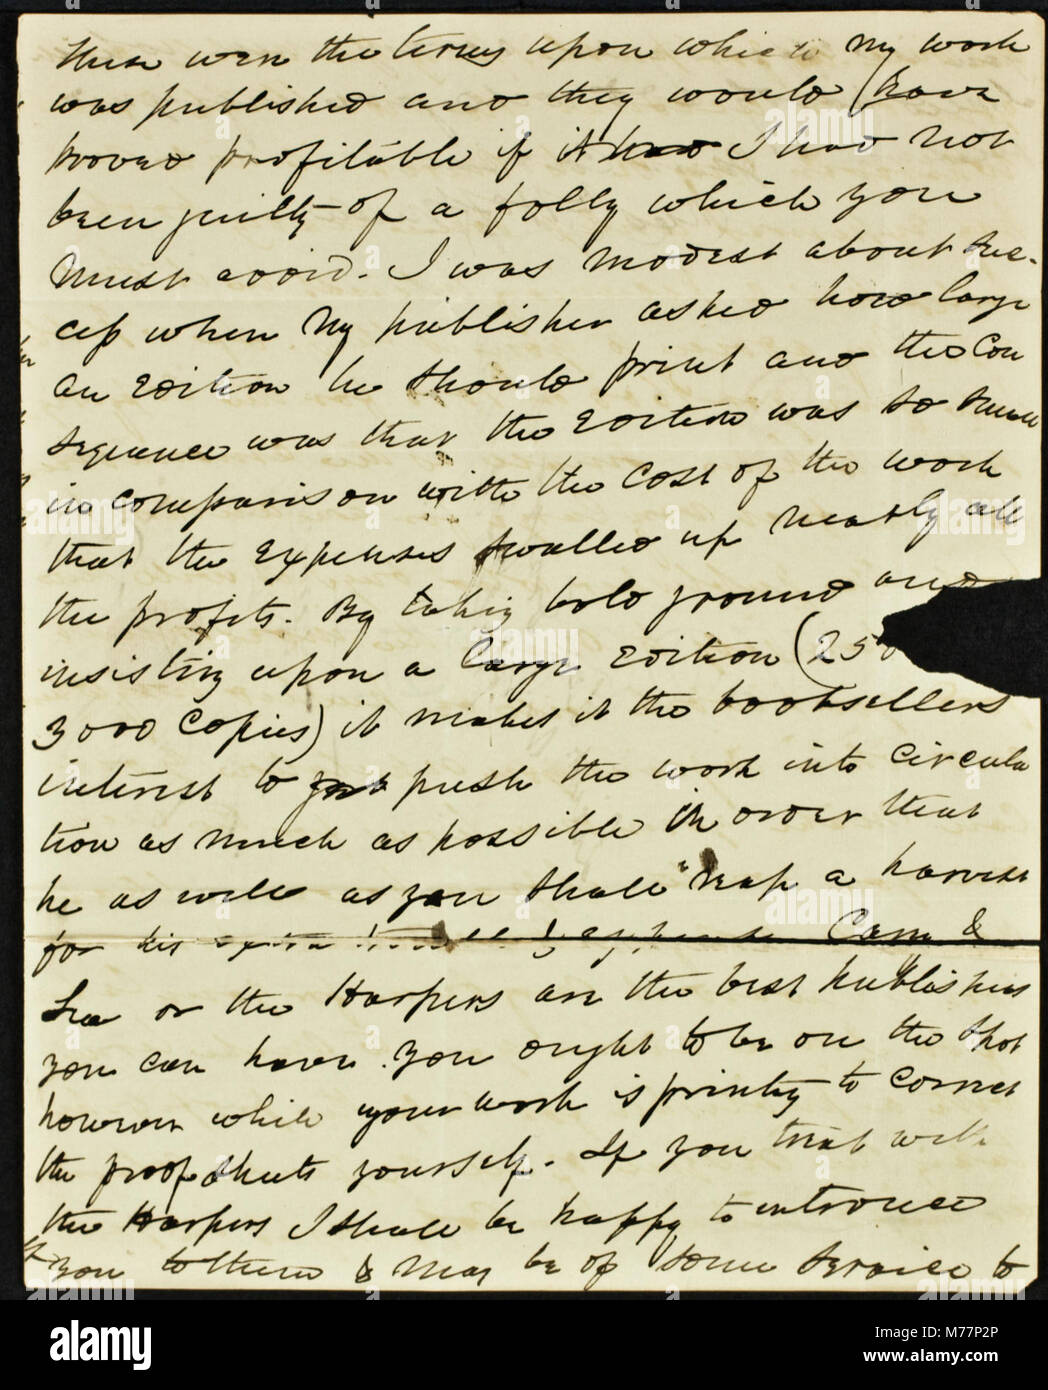 These were the terms upon which my work
was published and they would have
proved profitable if it had I had not
been guilty of a folly which you
must avoid. I was modest about suc-
cess when my publisher asked how large
an edition he should print and the con
sequence was that the edition was so small
in comparison with the cost of the work
that the expenses swalled up nearly all
the profits. By taking bold ground and
insisting upon a large edition (250
3000 copies) it makes it the booksellers
interest to push the work into circula
tion as much as possible in order that
he as well as you shall reap a harvest
for his extra trouble & expense Carey &
Lea or the Harpers are the best publishers
you can have. You ought to be on the spot
however while your work is printing to correct
the proof sheets yourself. If you treat with
the Harpers I shall be happy to introduce
you to them & may be of some service to
alamy
Image ID: M77P2P
www.alamy.com